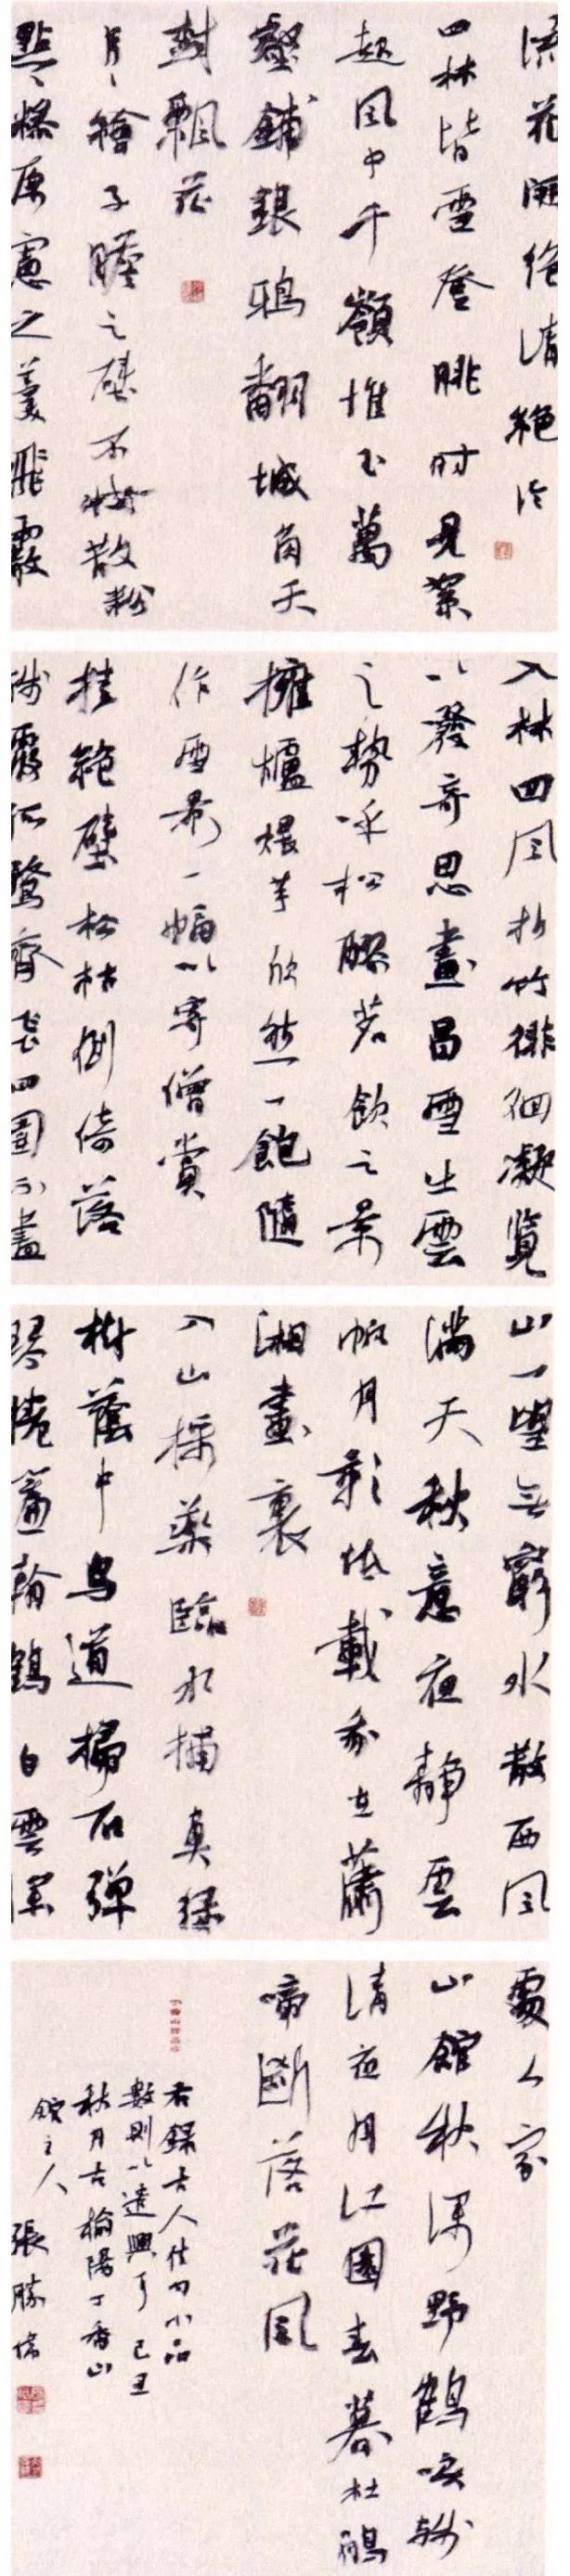 流花開絶清絶冷
四林皆雪登眺時見絮
起風中千嶺堆玉萬
壑鋪銀鴉翻城角天
對飄花
片片繪子瞻之壁不妝散粉
點點糝原憲之羹飛霰
入林回風折竹徘徊凝覽
以發奇思畫冒雪出雲
之勢呼松醪茗飲之景
擁爐煨芋欣然一飽隨
作雪景一幅以寄僧賞
挂絶壁松枯倒倚落
殘霞孤鶩齊飛四圍不盡
山一望無窮水散西風
滿天秋意夜靜雲
帆月影低載我在瀟
湘畫裏
入山採藥臨水捕魚綠
樹蔭中鳥道掃石彈
琴捲簾鶴白雲深
處人家
山館秋深野鶴唳殘
清夜月江園春暮杜鵑
啼斷落花風
右錄古人佳句小品
數則以遣興耳己丑
秋月古榆陽丁香山
館主人
張勝偉